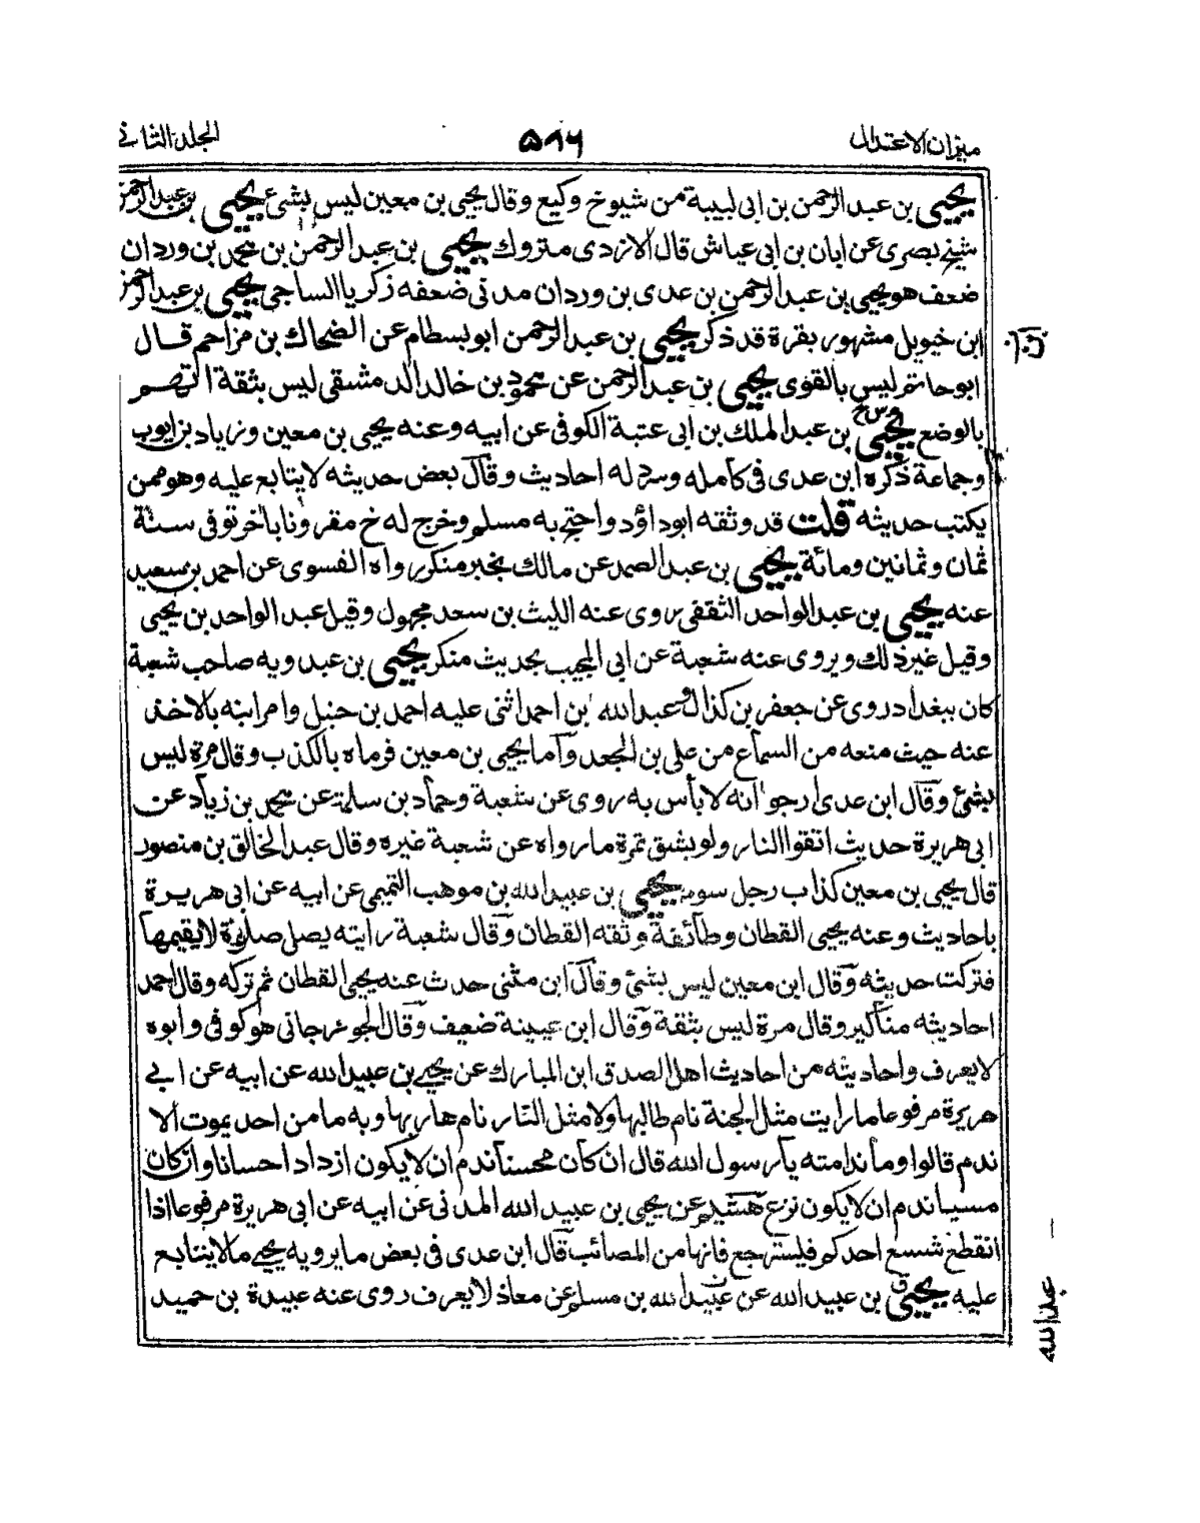 ميزان الاعتدال
٥٨٦
الجلد الثانى
يحيى بن عبد الرحمن بن ابى لبيبة من شيوخ وكيع وقال يحيى بن معين ليس بشئ يحيى بن عبد الرحمن
شيخ بصرى عن ابان بن ابى عياش قال الازدى متروك يحيى بن عبد الرحمن بن محمد بن وردان
ضعف هو يحيى بن عبد الرحمن بن عدى بن وردان مدنى ضعفه زكريا الساجى يحيى بن عبد الرحمن
ابن خيويل مشهور بقرة قد ذكر يحيى بن عبد الرحمن ابو بسطام عن الضحاك بن مزاحم قال
ابو حاتم ليس بالقوى يحيى بن عبد الرحمن عن محمود بن خالد الدمشقى ليس بثقة اتهم
بالوضع يحيى بن عبد الملك بن ابى عتبة الكوفى عن ابيه وعنه يحيى بن معين وزياد بن ايوب
وجماعة ذكره ابن عدى فى كامله وسرد له احاديث وقال بعض حديثه لا يتابع عليه وهو ممن
يكتب حديثه قلت قد وثقه ابو داؤد واحتج به مسلم وخرج له خ مقرونا باخر توفى سنة
ثمان وثمانين ومائة يحيى بن عبد الصمد عن مالك بخبر منكر رواه الفسوى عن احمد بن سعيد
عنه يحيى بن عبد الواحد الثقفى روى عنه الليث بن سعد مجهول وقيل عبد الواحد بن يحيى
وقيل غير ذلك ويروى عنه شعبة عن ابى المجيب بحديث منكر يحيى بن عبدويه صاحب شعبة
كان ببغداد روى عن جعفر بن كذال وعبد الله بن احمد اثنى عليه احمد بن حنبل وامر ابنه بالاخذ
عنه حيث منعه من السماع من على بن الجعد وآما يحيى بن معين فرماه بالكذب وقال مرة ليس
بشئ وقال ابن عدى ارجو انه لا بأس به روى عن شعبة وحماد بن سلمة عن محمد بن زياد عن
ابى هريرة حديث اتقوا النار ولو بشق تمرة ما رواه عن شعبة غيره وقال عبد الخالق بن منصور
قال يحيى بن معين كذاب رجل سوء يحيى بن عبيد الله بن موهب التيمى عن ابيه عن ابى هريرة
باحاديث وعنه يحيى القطان وطائفة وثقه القطان وقال شعبة رايته يصلى صلوة لا يقيمها
فتركت حديثه وقال ابن معين ليس بشئ وقال ابن مثنى حدث عنه يحيى القطان ثم تركه وقال احمد
احاديثه مناكير وقال مرة ليس بثقة وقال ابن عيينة ضعيف وقال الجوزجانى هو كوفى وابوه
لا يعرف واحاديثه من احاديث اهل الصدق ابن المبارك عن يحيى بن عبيد الله عن ابيه عن ابى
هريرة مرفوعا ما رايت مثل الجنة نام طالبها ولا مثل النار نام هاربها وبه ما من احد يموت الا
ندم قالوا وما ندامته يا رسول الله قال ان كان محسنا ندم ان لا يكون ازداد احسانا وان كان
مسيا ندم ان لا يكون نزع هشيم عن يحيى بن عبيد الله المدنى عن ابيه عن ابى هريرة مرفوعا اذا
انقطع شسع احدكم فليسترجع فانها من المصائب قال ابن عدى فى بعض ما يرويه يحيى ما لا يتابع
عليه يحيى بن عبيد الله عن عبيد الله بن مسلم عن معاذ لا يعرف روى عنه عبيدة بن حميد
عبد الله